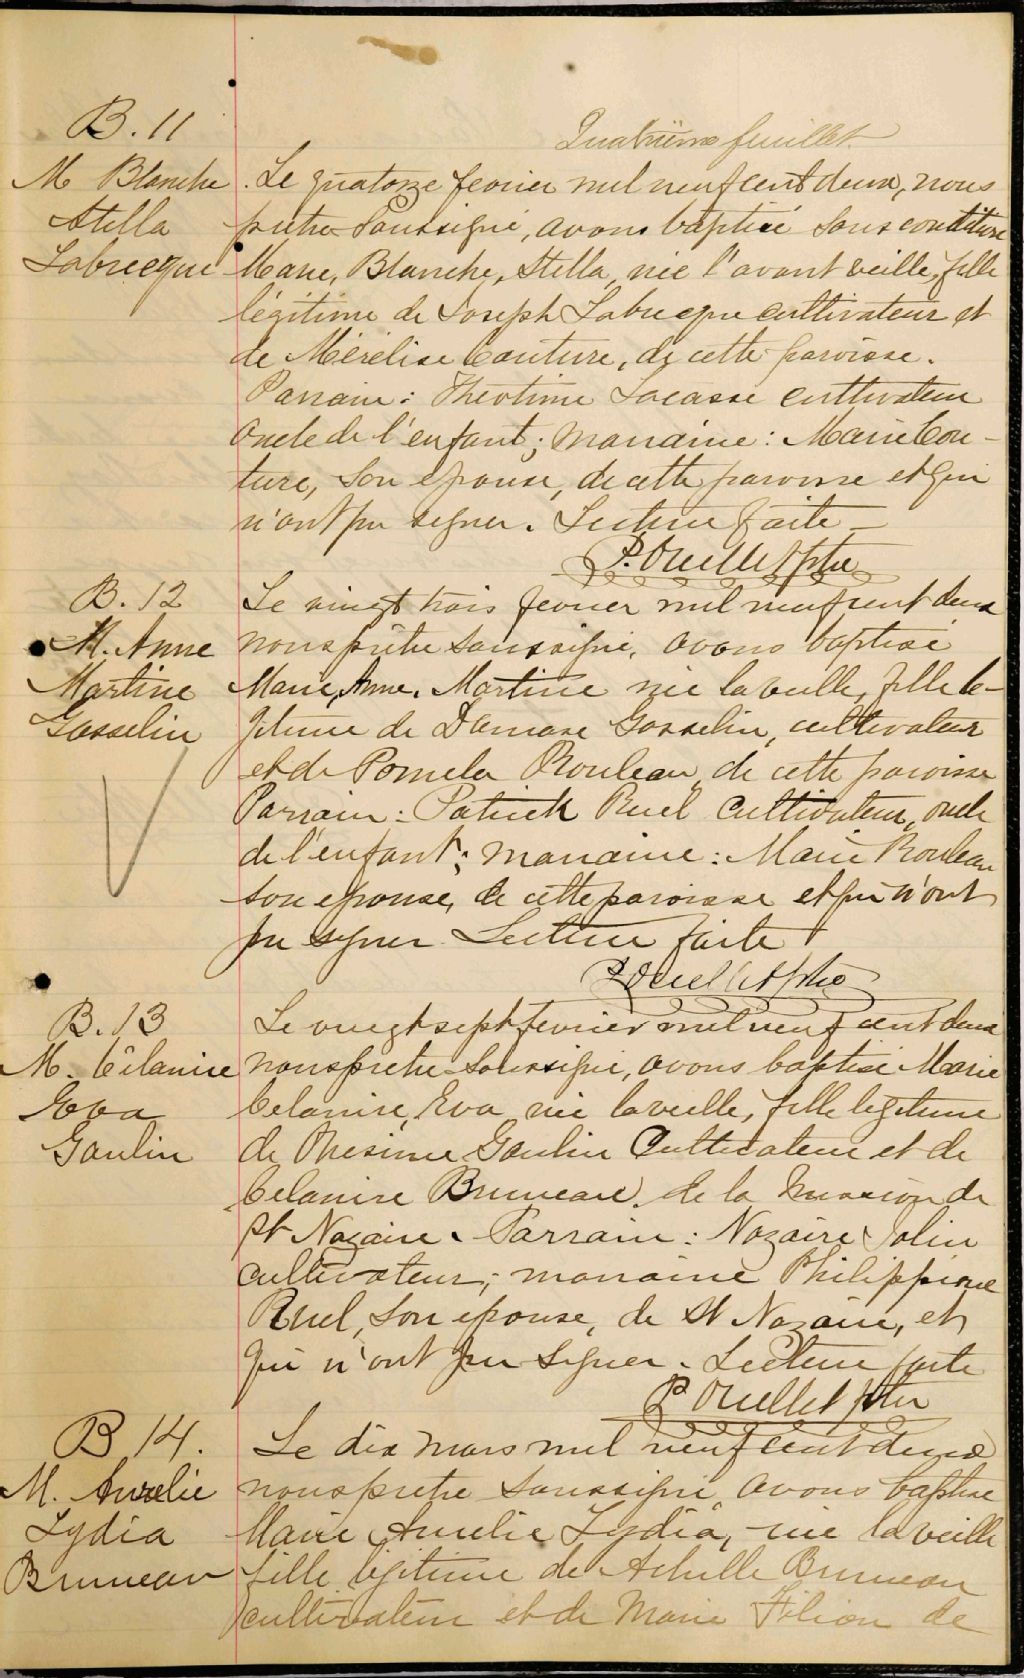 Quatrième feuillet
B. 11
M Blanche
Stella
Labrecque
Le quatorze fevrier mil neuf cent deux, nous
pretre soussigné, avons baptisé sous condition
Marie, Blanche, Stella, née l'avant veille, fille
légitime de Joseph Labrecque cultivateur et
de Mérélise Couture, de cette paroisse.
Parrain: Théotime Lacasse cultivateur
oncle de l'enfant; marraine: Marie Cou-
ture, son epouse, de cette paroisse et qui
n'ont pu signer. Lecture faite
P. Ouellet ptre
B. 12
M. Anne
Martine
Gosselin
Le vingt trois fevrier mil neuf cent deux
nous prêtre soussigné, avons baptisé
Marie, Anne, Martine née la veille, fille lé-
gitime de Damase Gosselin, cultivateur
et de Pomela Rouleau, de cette paroisse
Parrain: Patrick Ruel cultivateur, oncle
de l'enfant; marraine: Marie Rouleau
son epouse, de cette paroisse et qui n'ont
pu signer Lecture faite
P. Ouellet ptre
B. 13
M. Célanire
Eva
Goulin
Le vingt sept fevrier mil neuf cent deux
nous pretre soussigné, avons baptisé Marie
Celanire, Eva, née la veille, fille legitime
de Onesime Goulin Cultivateur et de
Celanire Bruneau de la mission de
St Nazaire. Parrain: Nazaire Jolin
cultivateur; marraine Philippine
Ruel, son epouse, de St Nazaire, et
qui n'ont pu signer. Lecture faite
P Ouellet ptre
B 14.
M. Aurelie
Lydia
Bruneau
Le dix mars mil neuf cent deux
nous pretre soussigné avons baptisé
Marie Aurelie Lydia, née la veille
fille légitime de Achille Bruneau
cultivateur et de Marie Filion de